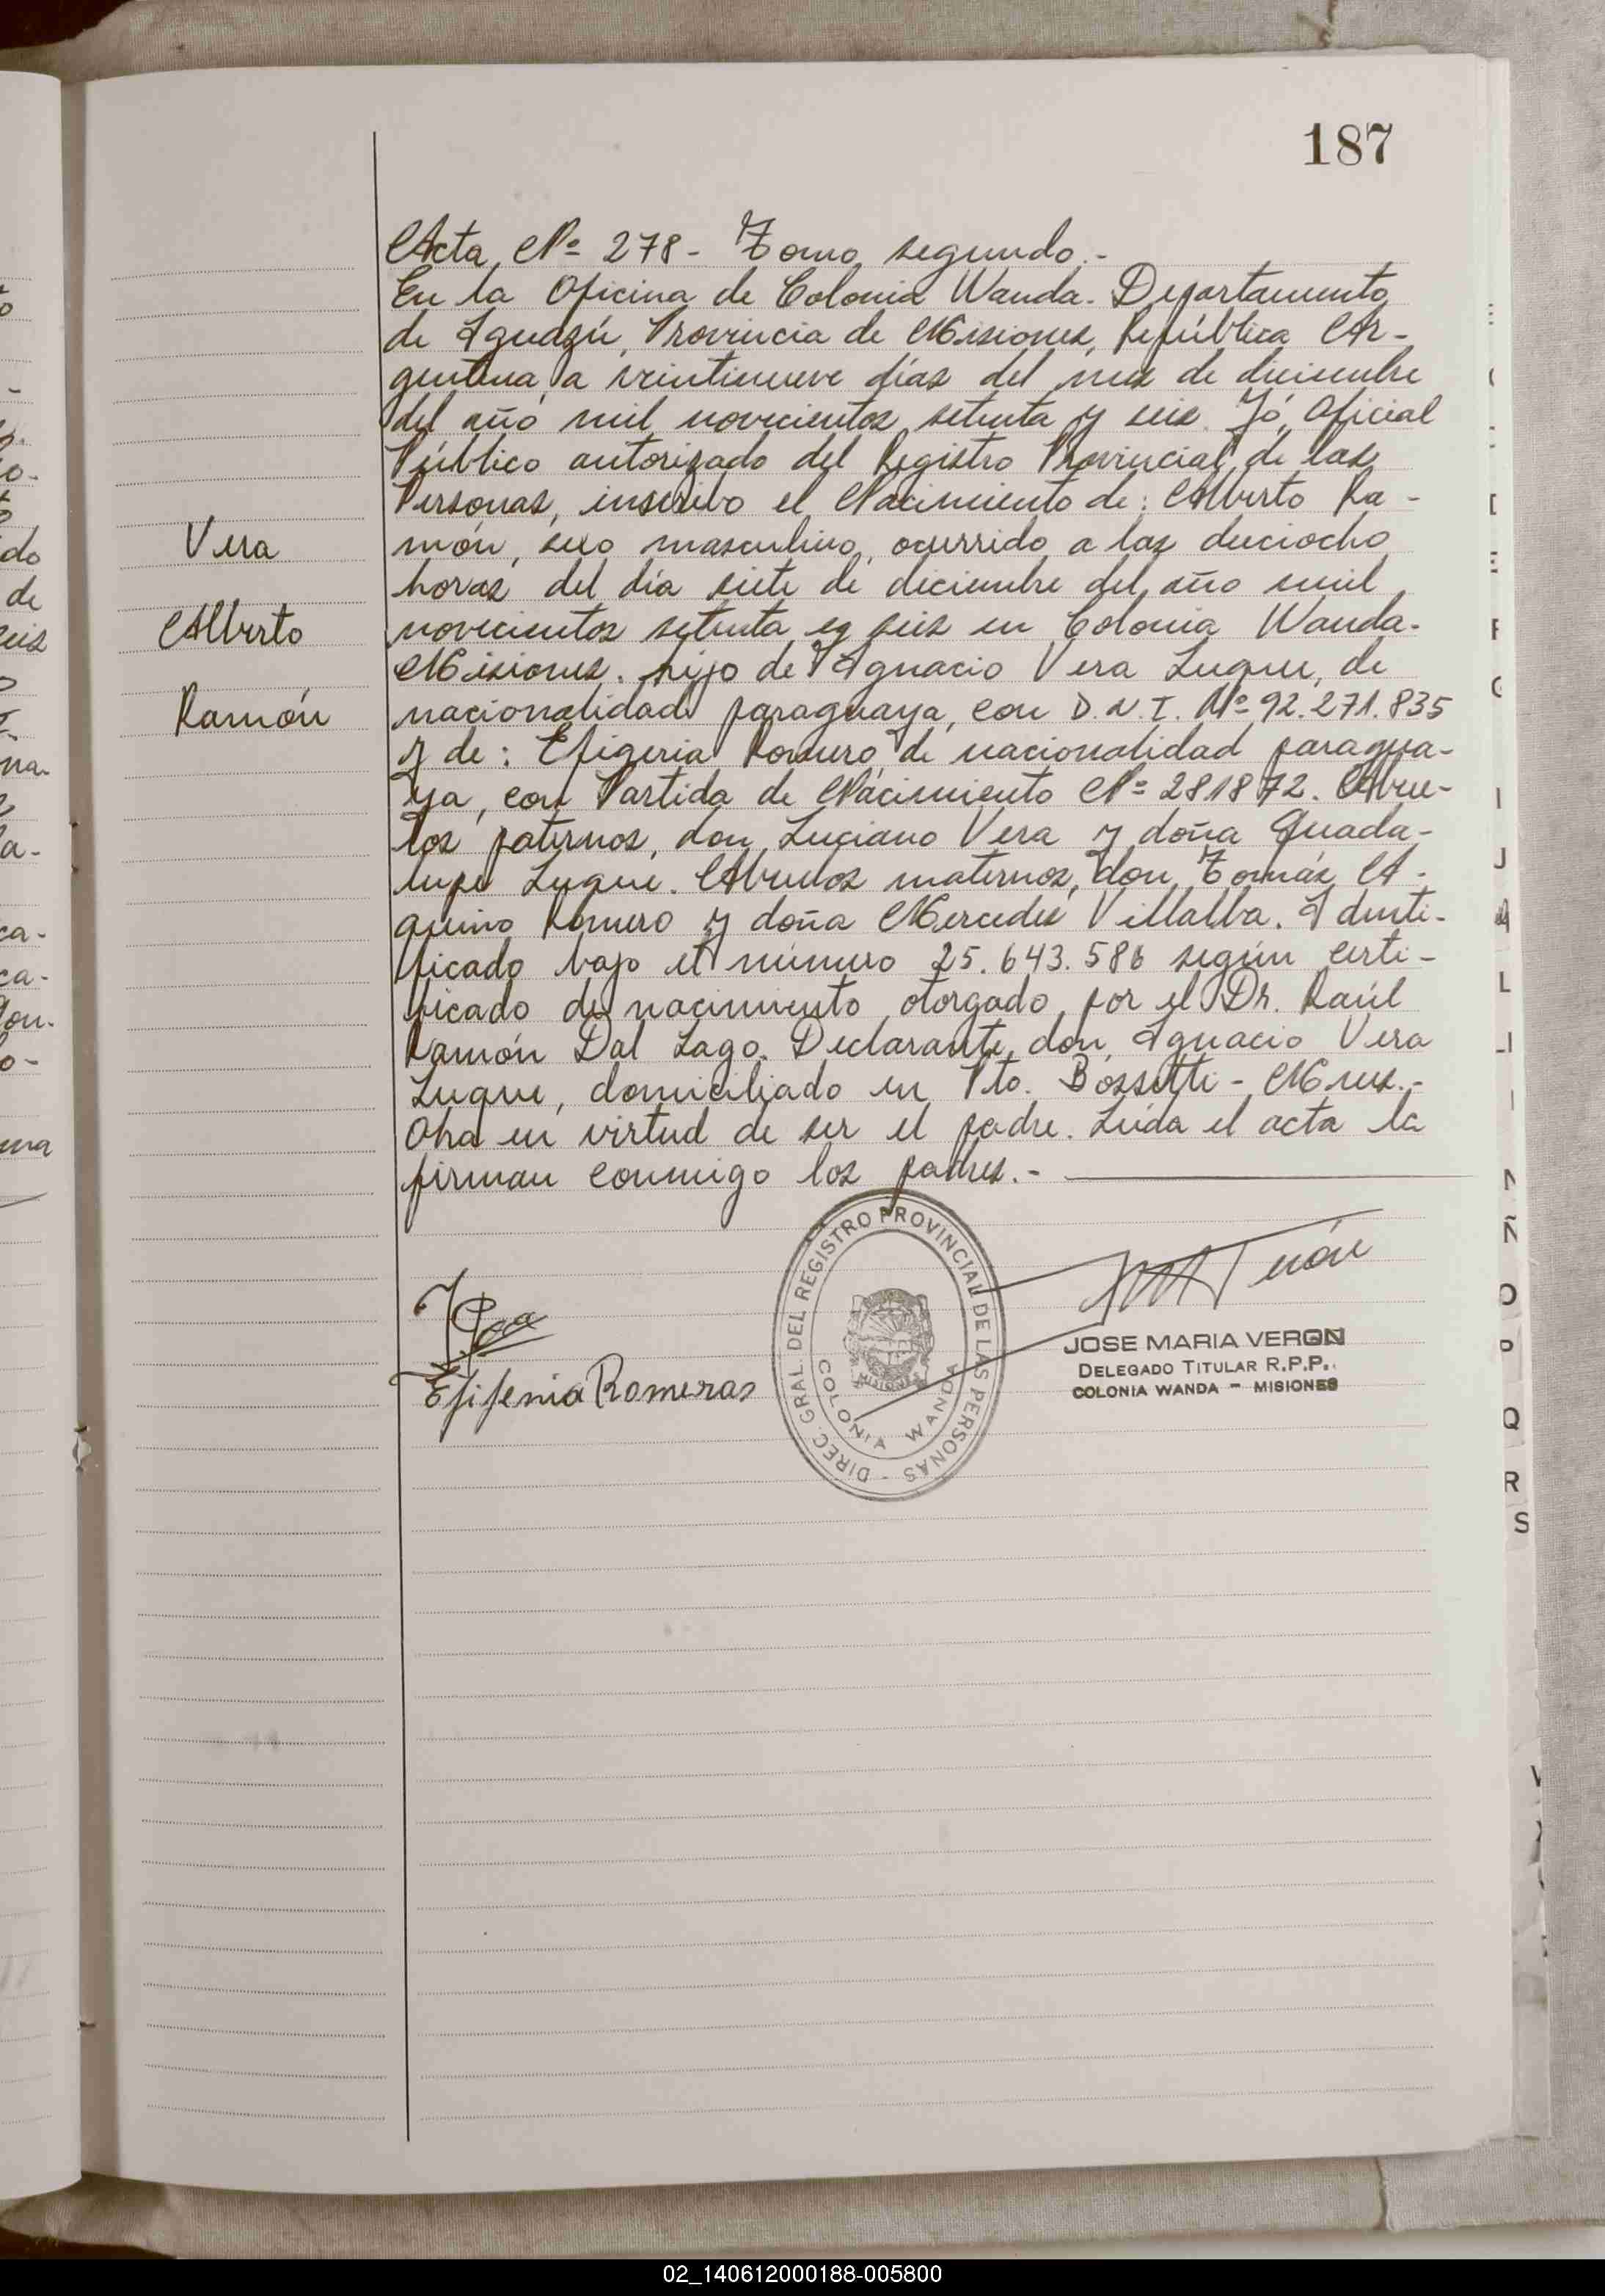 187
Acta Nº 278 - Tomo segundo.-
En la Oficina de Colonia Wanda. Departamento
de Iguazú, Provincia de Misiones, República Ar-
gentina, a veintinueve días del mes de diciembre
del año mil novecientos setenta y seis. Yó, Oficial
Público autorizado del Registro Provincial de las
Personas, inscribo el Nacimiento de: Alberto Ra-
món, sexo masculino, ocurrido a las dieciocho
horas del día siete de diciembre del año mil
novecientos setenta y seis en Colonia Wanda-
Misiones. hijo de Ignacio Vera Luque, de
nacionalidad paraguaya, con D.N.I. Nº 92.271.835
y de: Efigeria Romero de nacionalidad paragua-
ya, con Partida de Nacimiento Nº 281872. Abue-
los paternos, don Luciano Vera y doña Guada-
lupe Luque. Abuelos maternos, don Tomás A-
quino Romero y doña Mercedes Villalba. Identi-
ficado bajo el número 25.643.586 según certi-
ficado de nacimiento otorgado por el Dr. Raúl
Ramón Dal Lago. Declarante, don Ignacio Vera
Luque, domiciliado en Pto. Bossetti - Mnes.-
Obra en virtud de ser el padre. Leída el acta la
firman conmigo los padres.-
Vera
Alberto
Ramón
Efifenia Romeras
DIREC. GRAL. DEL REGISTRO PROVINCIAL DE LAS PERSONAS -
MISIONES
COLONIA WANDA
JOSE MARIA VERON
DELEGADO TITULAR R.P.P.
COLONIA WANDA - MISIONES
02_140612000188-005800